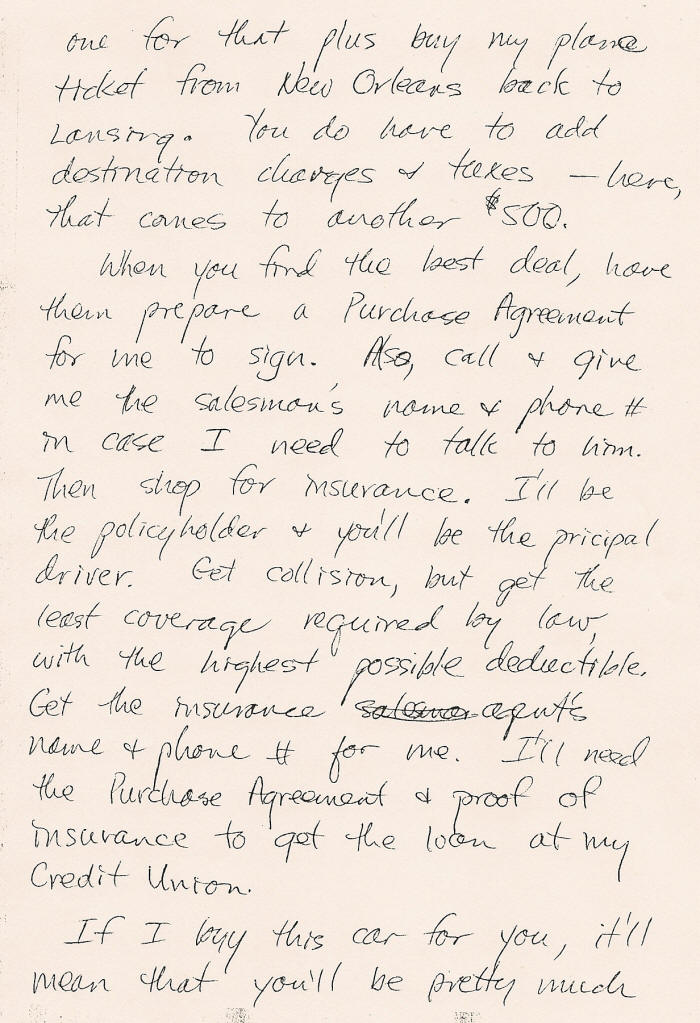 one for that plus buy my plane
ticket from New Orleans back to
Lansing. You do have to add
destination charges & taxes — here,
that comes to another $500.
When you find the best deal, have
them prepare a Purchase Agreement
for me to sign. Also, call & give
me the salesman's name & phone #
in case I need to talk to him.
Then shop for insurance. I'll be
the policyholder & you'll be the pricipal
driver. Get collision, but get the
least coverage required by law,
with the highest possible deductible.
Get the insurance agent's
name & phone # for me. I'll need
the Purchase Agreement & proof of
insurance to get the loan at my
Credit Union.
If I buy this car for you, it'll
mean that you'll be pretty much